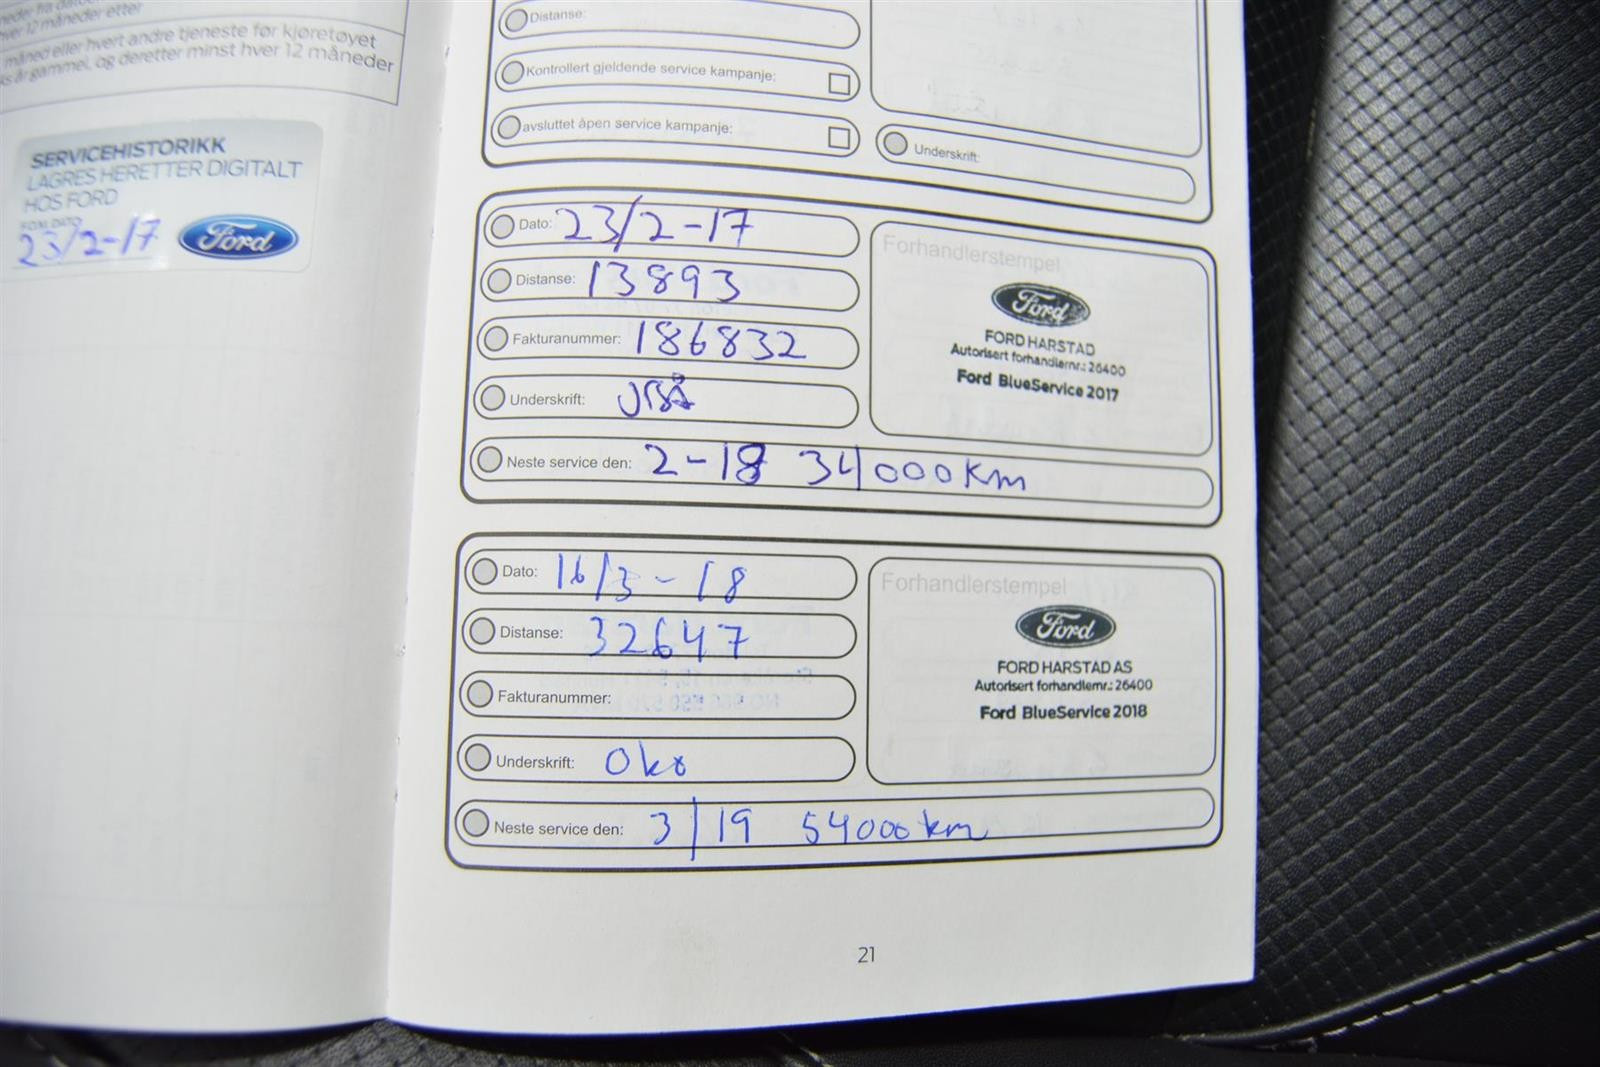 12 måneder etter
måned eller hvert andre tjeneste før kjøretøyet
års gammel, og deretter minst hver 12 måneder
SERVICEHISTORIKK
LAGRES HERETTER DIGITALT
HOS FORD
FOM. DATO
23/2-17
Ford
Distanse:
Kontrollert gjeldende service kampanje:
avsluttet åpen service kampanje:
Underskrift:
Dato: 23/2-17
Distanse: 13893
Fakturanummer: 186832
Underskrift:
Neste service den: 2-18 34000 km
Forhandlerstempel
Ford
FORD HARSTAD
Autorisert forhandlernr.: 26400
Ford BlueService 2017
Dato: 16/3-18
Distanse: 32647
Fakturanummer:
Underskrift: Oko
Neste service den: 3/19 54000 km
Forhandlerstempel
Ford
FORD HARSTAD AS
Autorisert forhandlernr.: 26400
Ford BlueService 2018
21